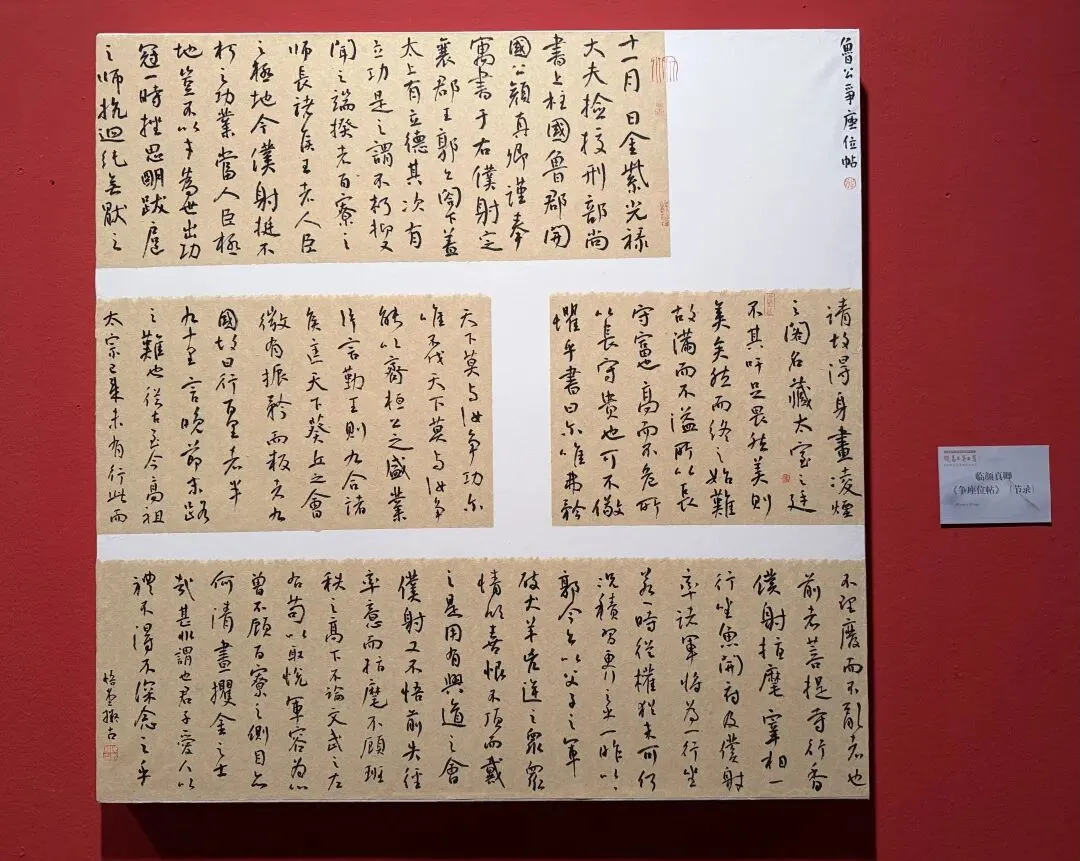 魯公爭座位帖
十一月日金紫光禄
大夫撿挍刑部尚
書上柱國魯郡開
國公顏真卿謹奉
寓書于右僕射定
襄郡王郭公閤下蓋
太上有立德其次有
立功是之謂不朽抑又
聞之端揆者百寮之
師長諸侯王者人臣
之極地今僕射挺不
朽之功業當人臣極
地豈不以才為世出功
冠一時挫思明跋扈
之師抗迴紇無猒之
請故得身畫凌煙
之閣名藏太室之廷
不其吁足畏然美則
美矣然而終之始難
故滿而不溢所以長
守富也高而不危所
以長守貴也可不儆
懼乎書曰尔唯弗矜
天下莫与汝爭功尔
唯不伐天下莫与汝爭
能以齊桓公之盛業
片言勤王則九合諸
侯匡天下葵丘之會
微有振矜而叛者九
國故曰行百里者半
九十里言晚節末路
之難也從古至今高祖
太宗已來未有行此而
不理廢而不亂者也
前者菩提寺行香
僕射指麾宰相一
行坐魚開府及僕射
率諸軍將為一行坐
若一時從權猶未可何
況積習更行之乎一昨以
郭令公以父子之軍
破犬羊兇逆之眾眾
情欣喜恨不頂而戴
之是用有興道之會
僕射又不悟前失徑
率意而指麾不顧班
秩之高下不論文武之左
右苟以取悅軍容為心
曾不顧百寮之側目亦
何清晝攫金之士
哉甚非謂也君子愛人以
禮不得不深念之乎
临颜真卿
《争座位帖》（节录）